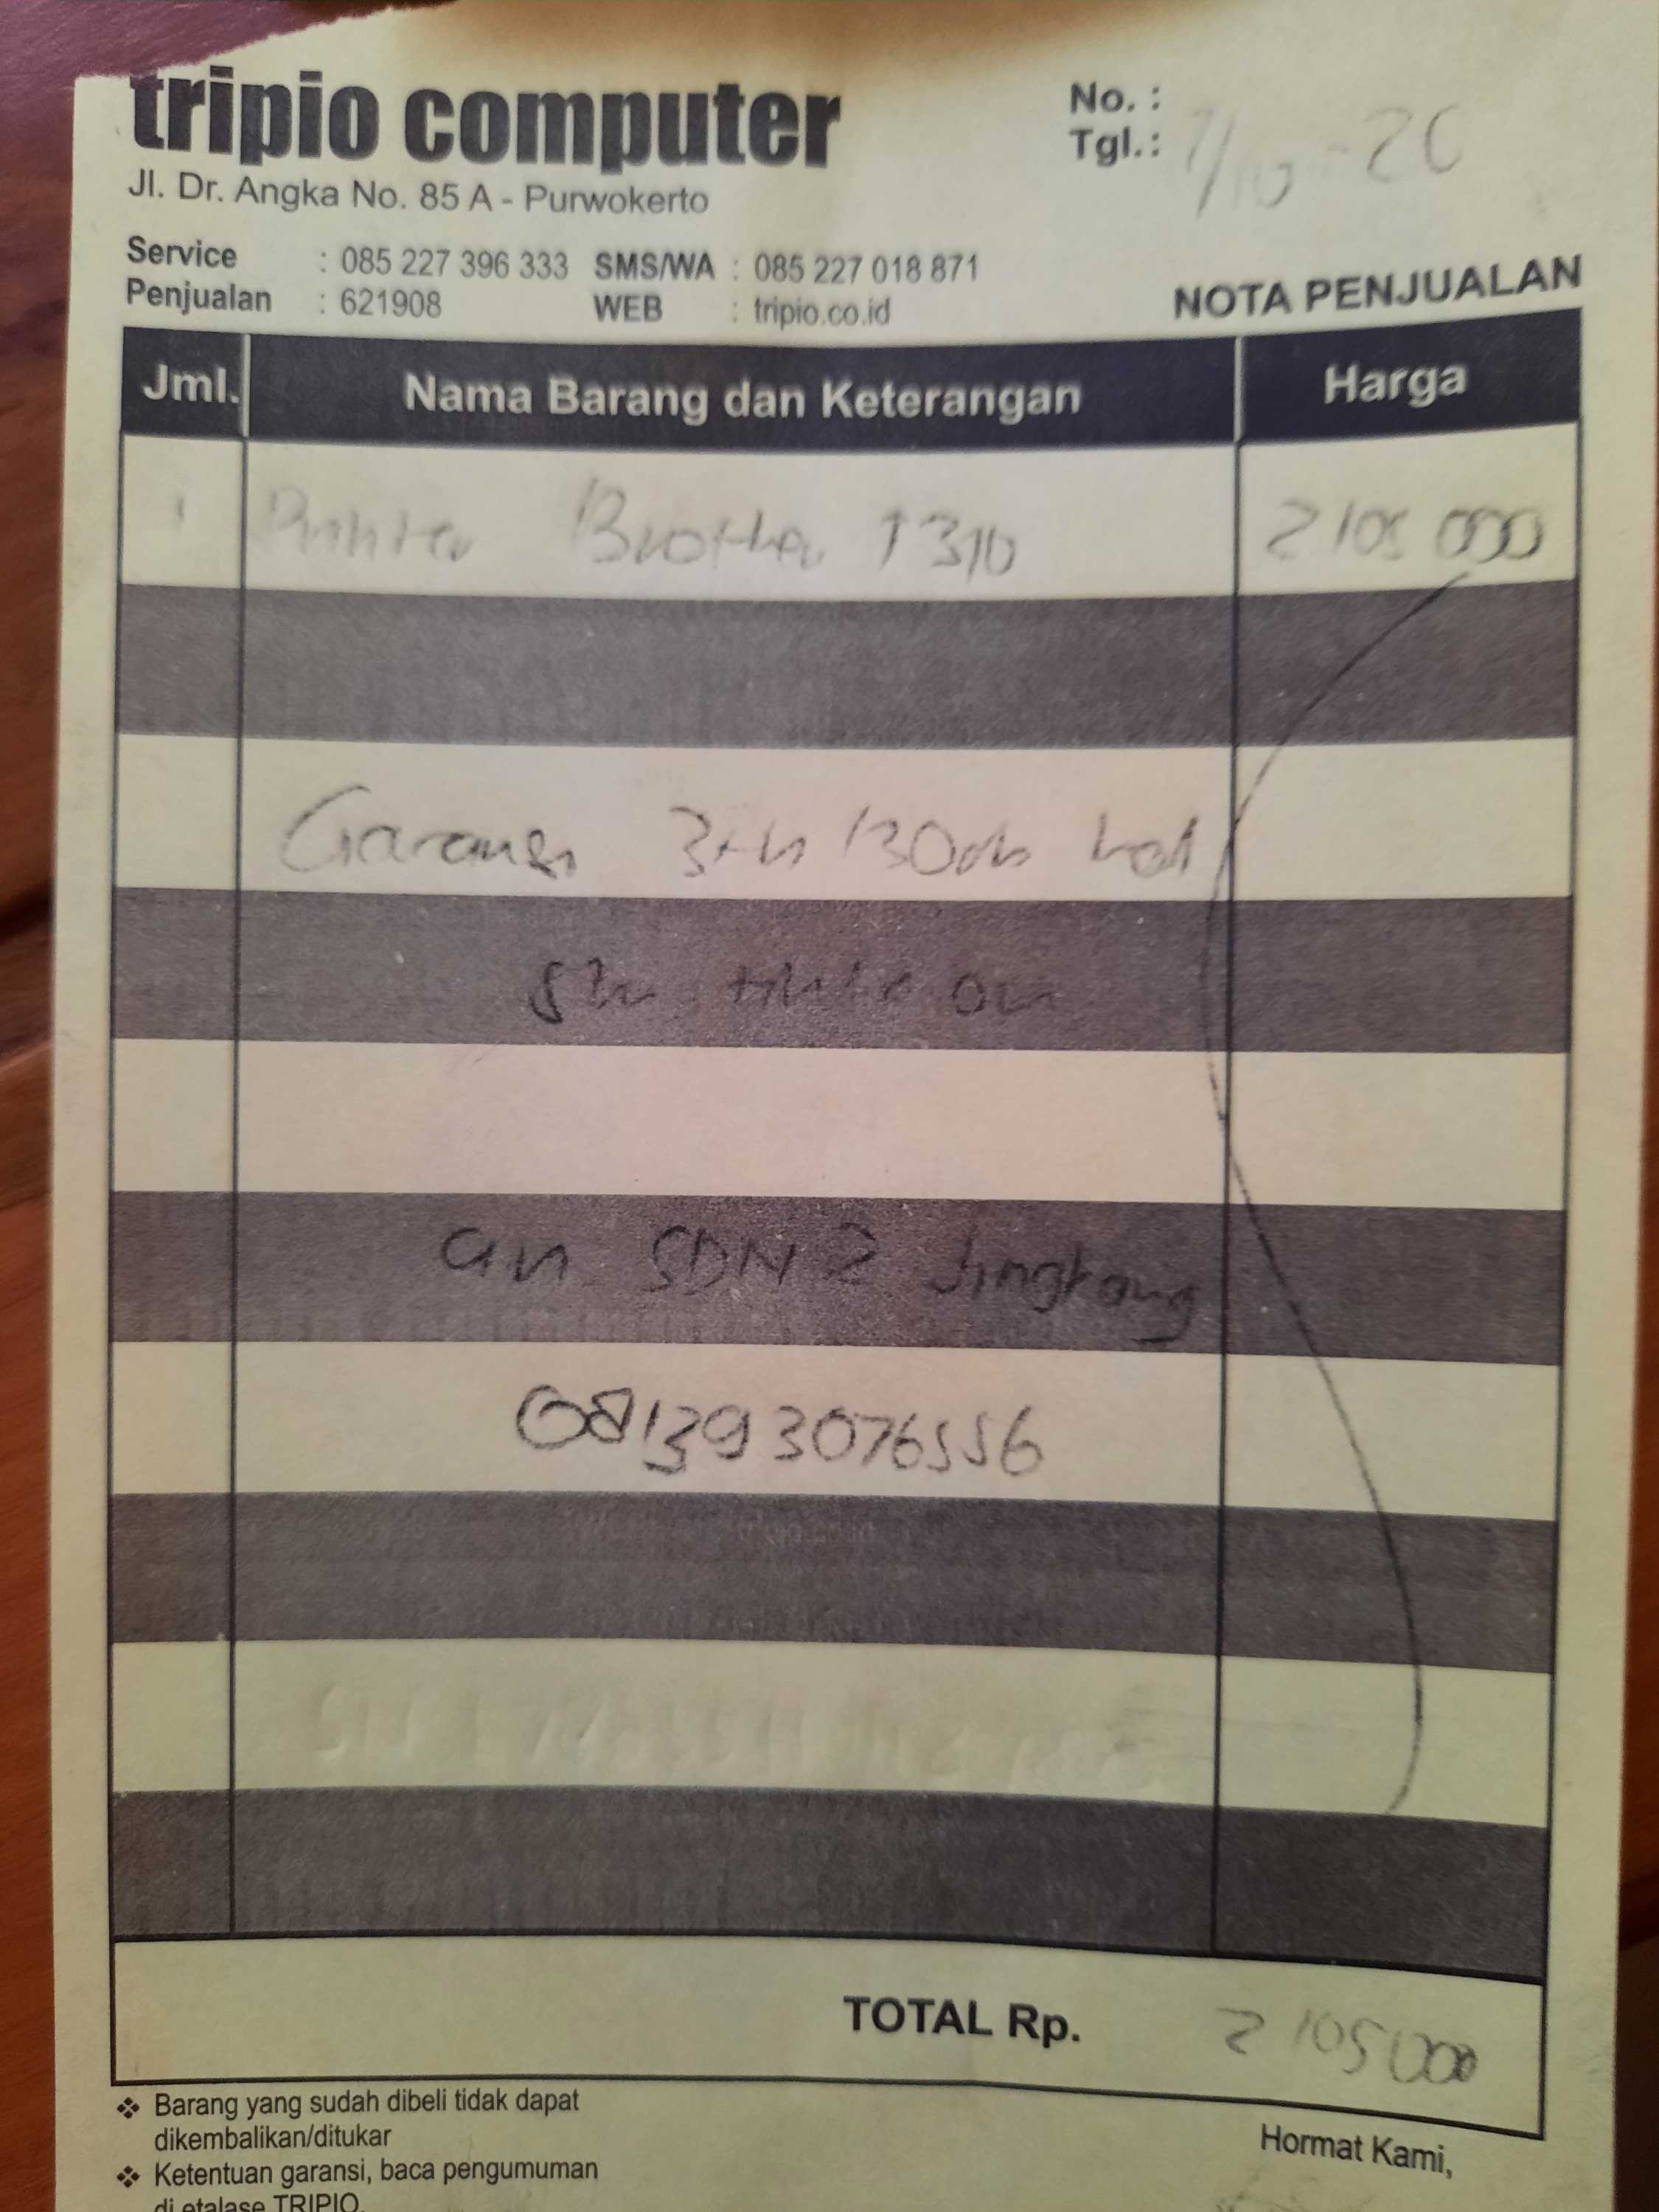 tripio computer
Jl. Dr. Angka No. 85 A - Purwokerto
No. :
Tgl.: 7/10 - 20
Service : 085 227 396 333 SMS/WA : 085 227 018 871
Penjualan : 621908 WEB : tripio.co.id
NOTA PENJUALAN
Jml. Nama Barang dan Keterangan Harga
1 Printer Brother T310 2105 000
Garansi 3th
an SDN 2 Jingkang
081393076556
TOTAL Rp. 2105000
❖ Barang yang sudah dibeli tidak dapat
dikembalikan/ditukar
❖ Ketentuan garansi, baca pengumuman
di etalase TRIPIO.
Hormat Kami,